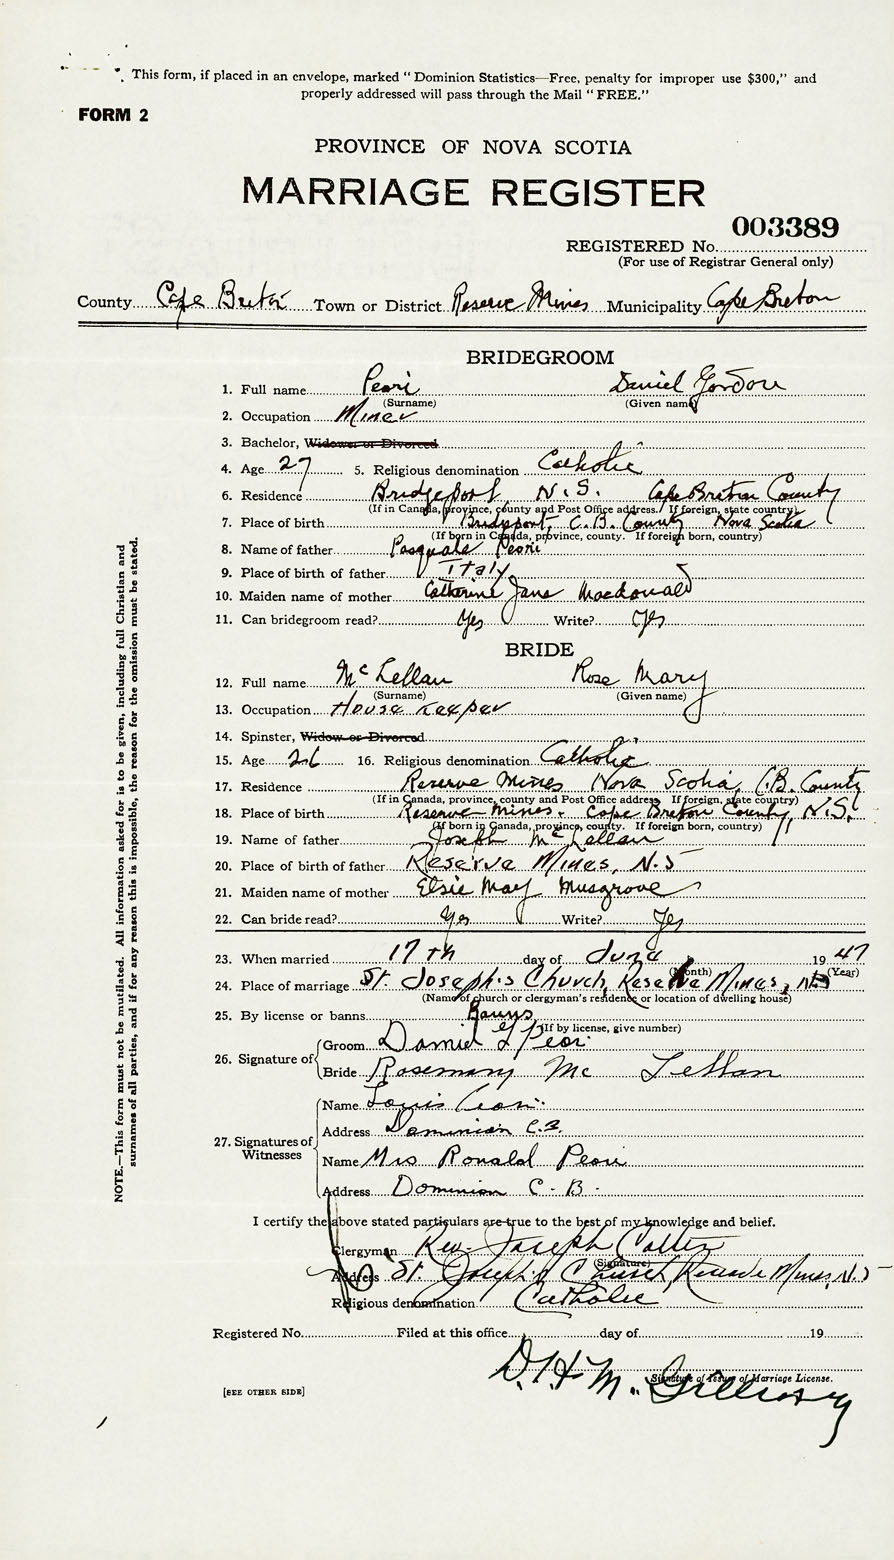 This form, if placed in an envelope, marked "Dominion Statistics—Free, penalty for improper use $300," and
properly addressed will pass through the Mail "FREE."
FORM 2
PROVINCE OF NOVA SCOTIA
MARRIAGE REGISTER
003389
REGISTERED No.
(For use of Registrar General only)
County Cape Breton Town or District Reserve Mines Municipality Cape Breton
BRIDEGROOM
1. Full name Peori Daniel Gordon
(Surname) (Given name)
2. Occupation Miner
3. Bachelor, Widower or Divorced
4. Age 27 5. Religious denomination Catholic
6. Residence Bridgeport N.S. Cape Breton County
(If in Canada, province, county and Post Office address. If foreign, state country)
7. Place of birth Bridgeport, C.B. County Nova Scotia
(If born in Canada, province, county. If foreign born, country)
8. Name of father Pasquale Peori
9. Place of birth of father Italy
10. Maiden name of mother Catherine Jane Macdonald
11. Can bridegroom read? Yes Write? Yes
BRIDE
12. Full name McLellan Rose Mary
(Surname) (Given name)
13. Occupation House Keeper
14. Spinster, Widow or Divorced
15. Age 26 16. Religious denomination Catholic
17. Residence Reserve Mines Nova Scotia, C.B. County
(If in Canada, province, county and Post Office address. If foreign, state country)
18. Place of birth Reserve Mines. Cape Breton County, N.S.
(If born in Canada, province, county. If foreign born, country)
19. Name of father Joseph McLellan
20. Place of birth of father Reserve Mines, N.S
21. Maiden name of mother Elsie May Musgrove
22. Can bride read? Yes Write? Yes
23. When married 17th day of June 1947
(Month) (Year)
24. Place of marriage St. Joseph's Church, Reserve Mines, NS
(Name of church or clergyman's residence or location of dwelling house)
25. By license or banns Banns
(If by license, give number)
26. Signature of Groom Daniel G Peori
Bride Rosemary Mc Lellan
27. Signatures of Witnesses
Name Louis Peori
Address Dominion C.B.
Name Mrs Ronald Peori
Address Dominion C.B.
I certify the above stated particulars are true to the best of my knowledge and belief.
Clergyman Rev. Joseph
(Signature)
Address St. Joseph's Church, Reserve Mines, N.S
Religious denomination Catholic
Registered No. Filed at this office day of 19
D. H. McGillivray
Signature of Issuer of Marriage License.
[SEE OTHER SIDE]
NOTE.—This form must not be mutilated. All information asked for is to be given, including full Christian and
surnames of all parties, and if for any reason this is impossible, the reason for the omission must be stated.